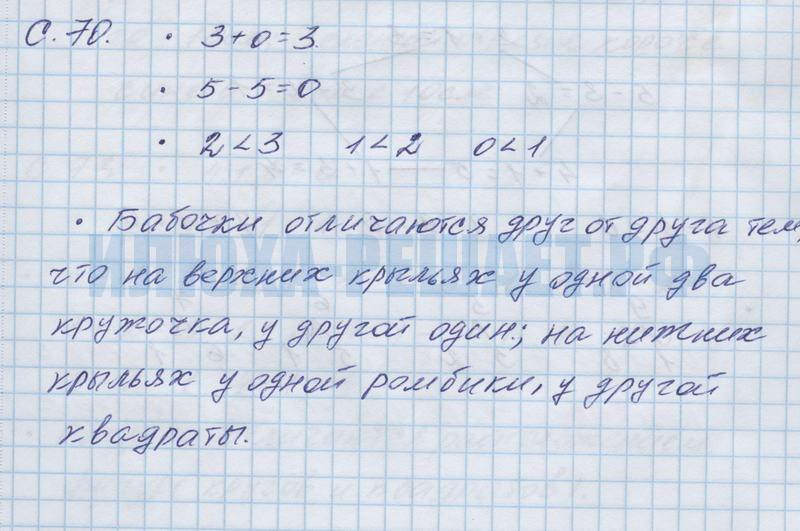 С. 70. • 3+0=3.
• 5-5=0
• 2<3 1<2 0<1
• Бабочки отличаются друг от друга тем,
ИЛЮХА-РЕШАЕТ.РФ
что на верхних крыльях у одной два
кружочка, у другой один.; на нижних
крыльях у одной ромбики, у другой
квадраты.